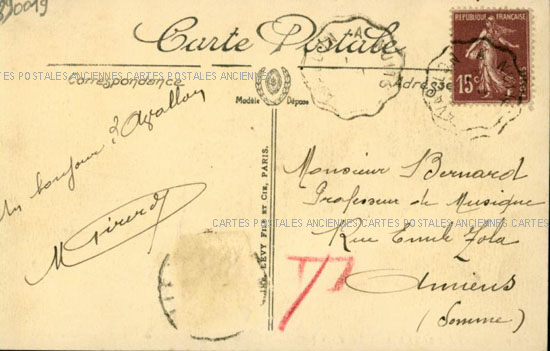 890019
RÉPUBLIQUE FRANÇAISE
15c
POSTES
Carte Postale
CARTES POSTALES ANCIENNES CARTES POSTALES ANCIENNES
Correspondance
Adresse
Modèle Déposé
Un bonjour d'Avallon
M Girard
LÉVY FILS ET CIE, PARIS.
Monsieur Bernard
Professeur de Musique
CARTES POSTALES ANCIENNES CARTES POSTALES ANCIENNES
Rue Emile Zola
Amiens
(Somme)
T